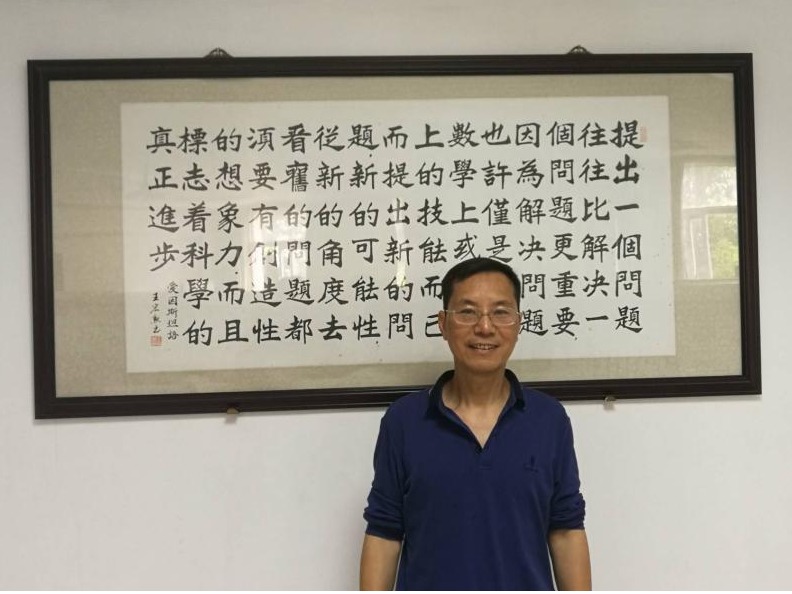 提出一個問題
往往比解決一
個問題更重要
因為解決問題
也許僅是
數學上或
上的技能而已
而提出新的問
題新的可能性
從新的角度去
看舊的問題都
須要有創造性
的想象力而且
標志着科學的
真正進步
愛因斯坦語